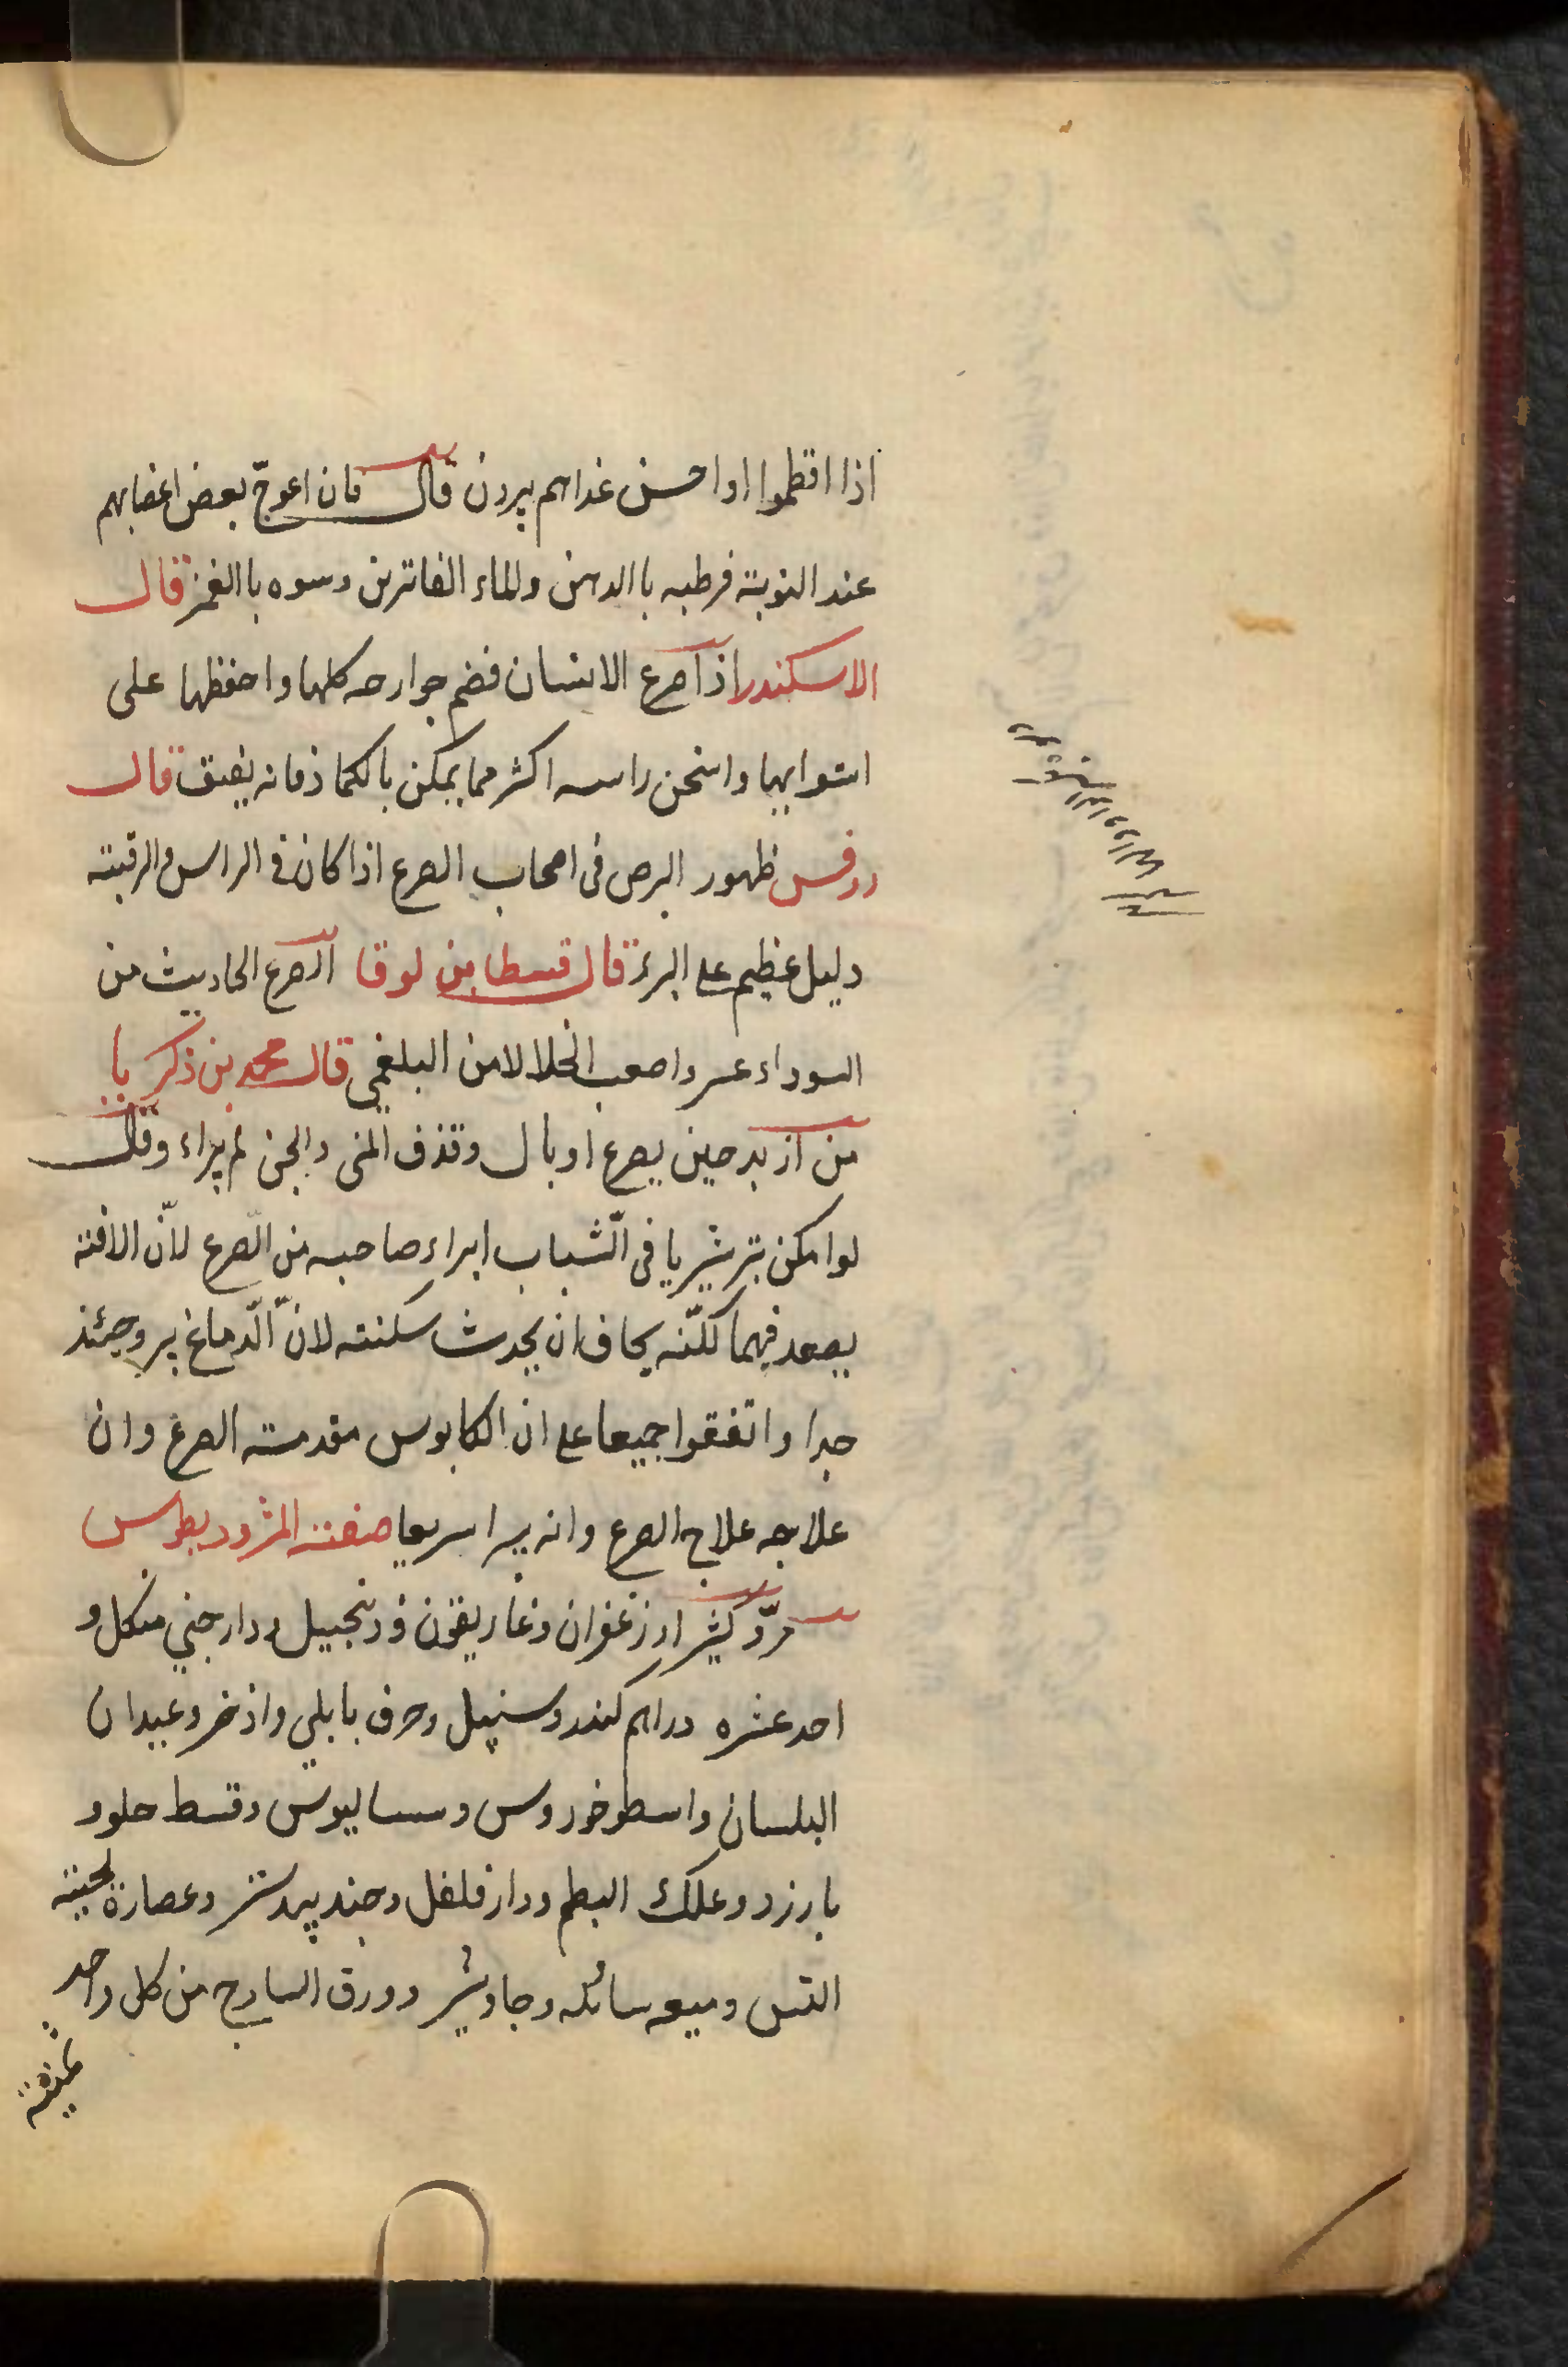 اذا اقطموا اوا حسن غداهم يبرون قال فان اعوجّ بعض اعضايهم
عند النوبته فرطبه با الدهن والماء الفاترين وسوه با الغمز قال
الاسكندر اذا صرع الانسان فضم جوارحه كلها واحفظها على
استوايها واسخن راسه اكثر مما يمكن بالكماد فانه يفيق قال
روفس ظهور البرص فى اصحاب الصرع اذا كان فى الراس والرقبته
دليل عظيم على البرء قال قسطا بن لوقا الصرع الحاديث من
السوداء عسر واصعب انحلالا من البلغمي قال محمد بن ذكريا
من ازبد حين يصرع او بال وقذف المنى والجن لم يبراء وقال
لو امكن بترشريا فى الشّباب ابراء صاحبه من الصّرع لانّ الافته
يصعد فيهما لكنّه يخاف ان يحدث سكتته لانّ الّدماغ يبر وحينئذ
جدا واتفقوا جميعا على ان الكابوس مقدمته الصرع وان
علاجه علاج الصرع وانه يبرا سريعا صفته المثروديطوس
مرّ وكثيرا وزعفران وغاريقون وزنجبيل ودارجني من كل و
احد عشره دراهم كندر وسنبل وحرف بابلي واذخر وعيدان
البلسان واسطوخودوس وسساليوس وقسط حلو و
بارزد وعلك البطم ودار فلفل وجند بيدستر وعصارة لحيته
التيس وميعه سائله وجاوشير وورق السادج من كل واحد
ثمنيته